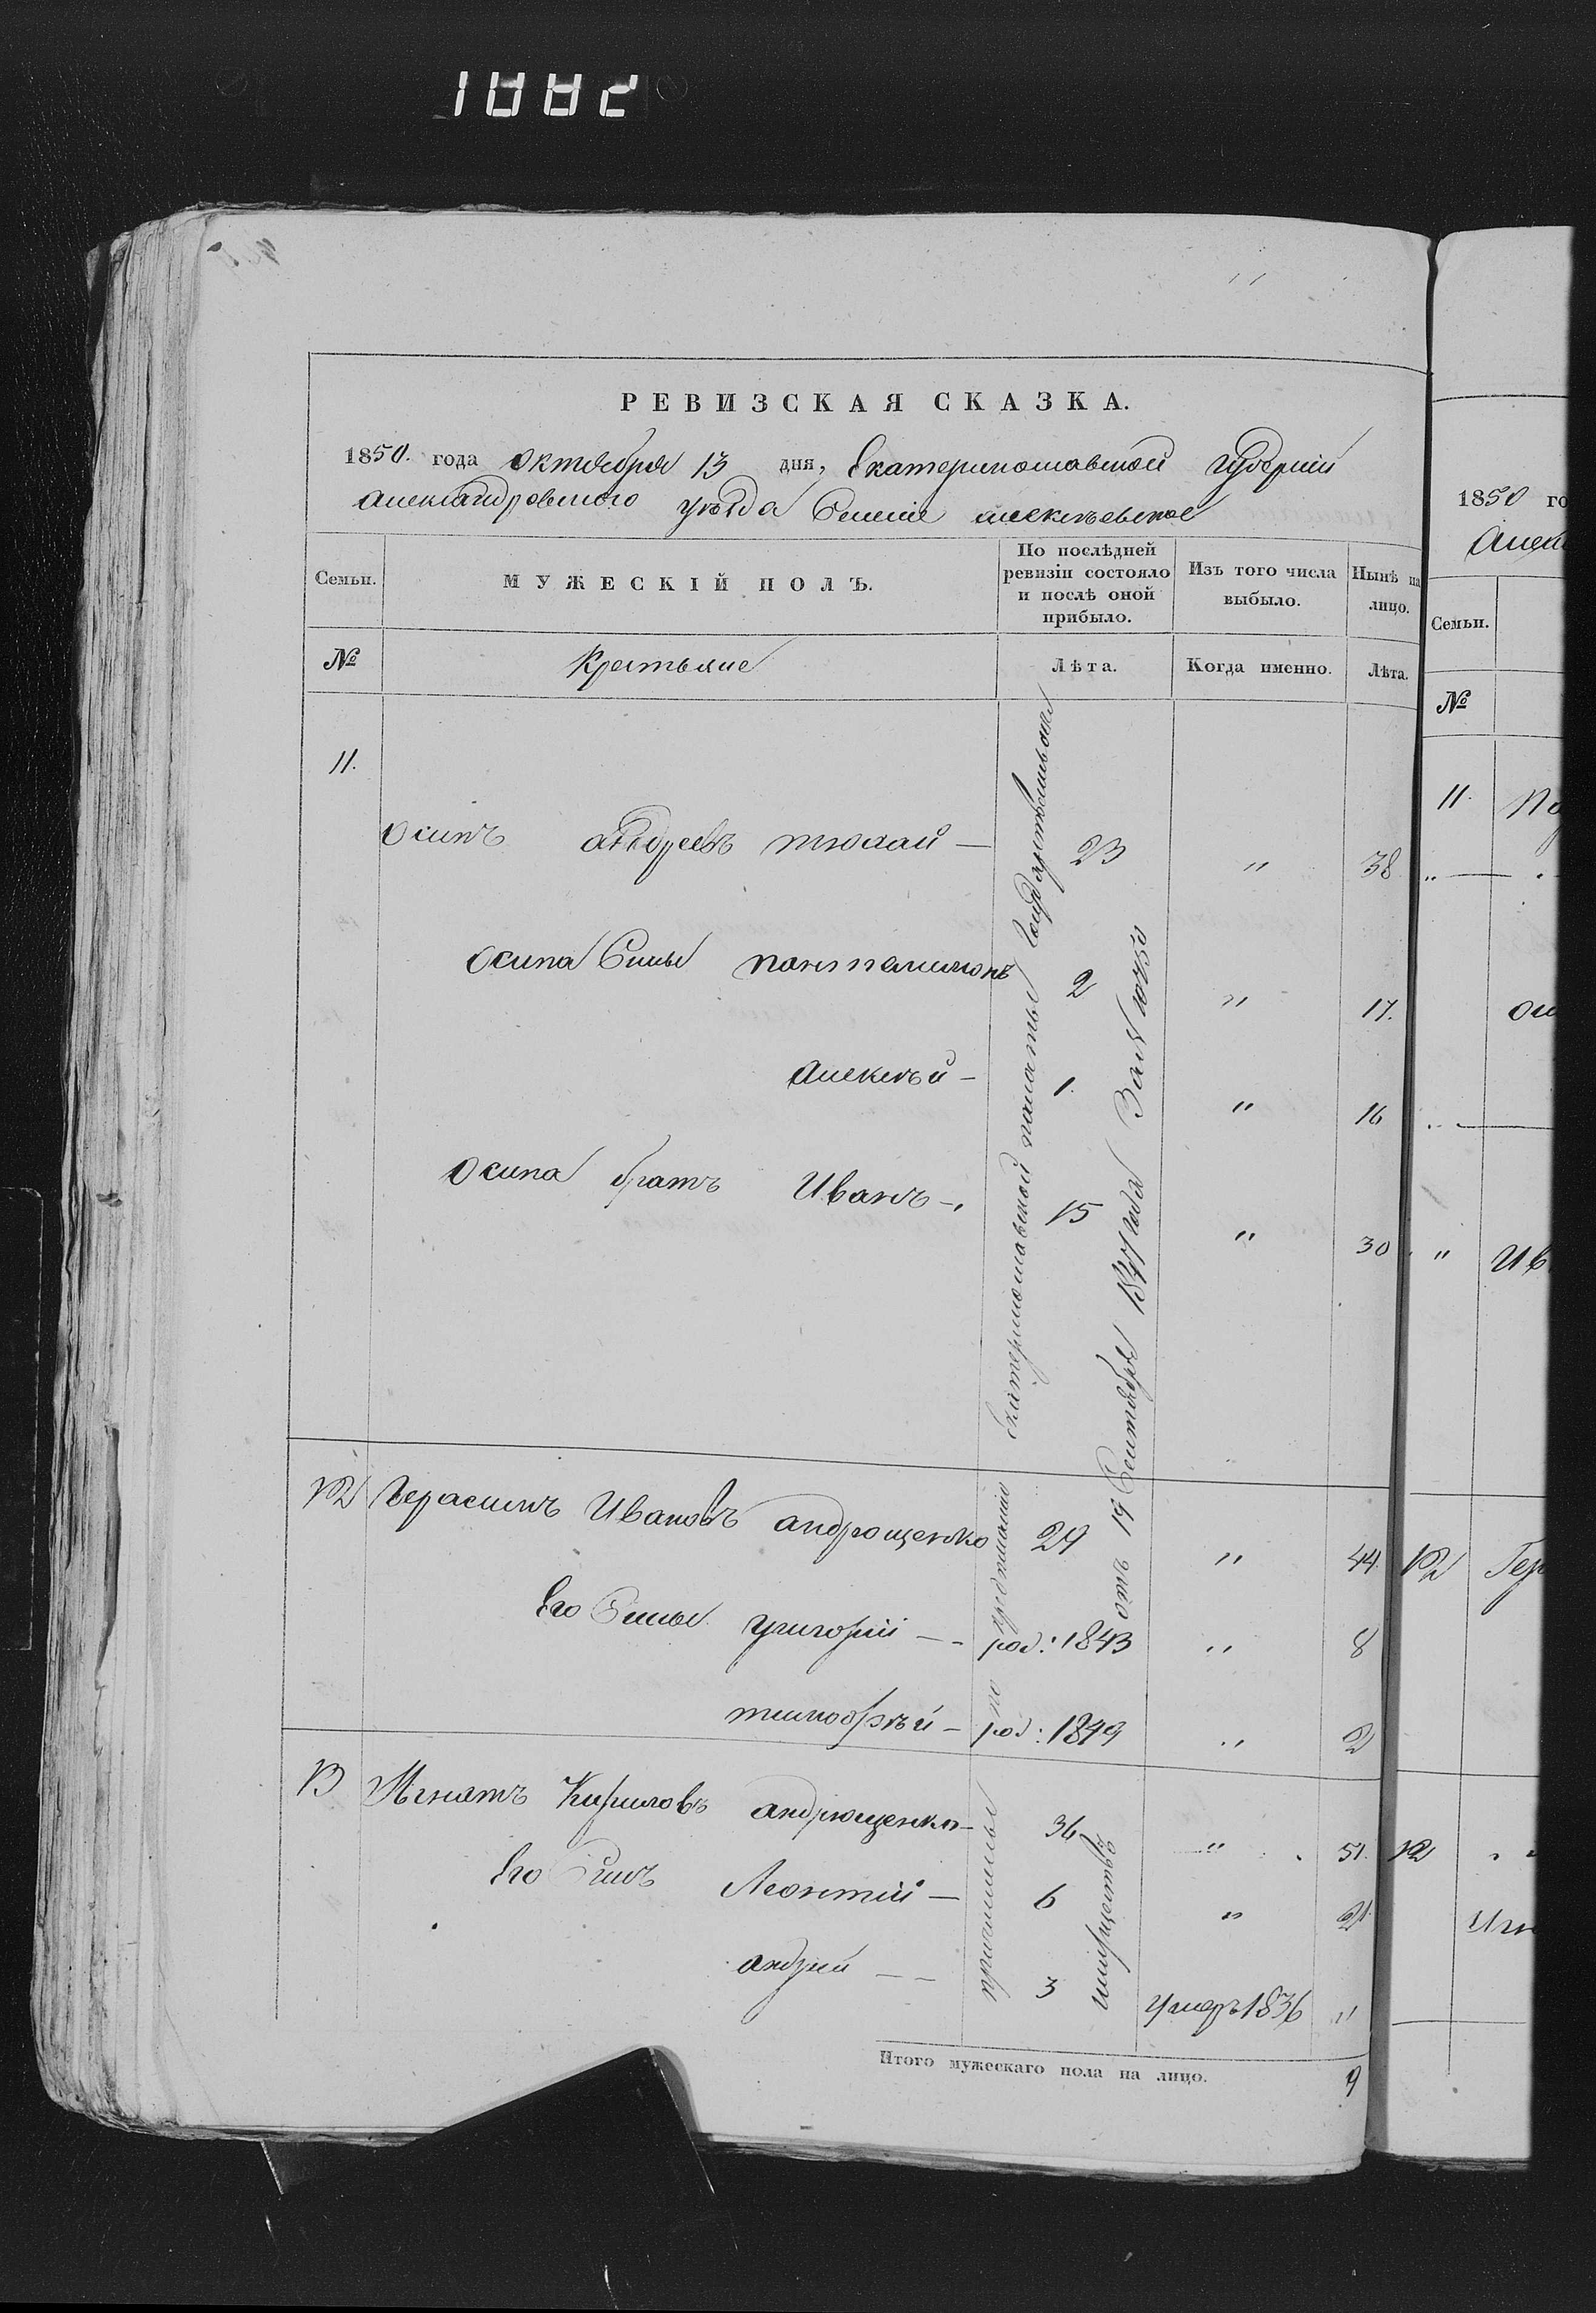 1882
РЕВИЗСКАЯ СКАЗКА.
1850. года Октября 13 дня, Екатеринославской губерніи
александровского уѣзда Селеніе алексѣевское
Семьи.
МУЖЕСКІЙ ПОЛЪ.
По послѣдней ревизіи состояло и послѣ оной прибыло.
Изъ того числа выбыло.
Нынѣ на лицо.
№
Крестьяне
Лѣта.
Когда именно.
Лѣта.
11.
Осипъ андреевъ тюлай — 23 " 38
Осипа Сины пантелимонъ 2 " 17.
алексѣй - 1. " 16
Осипа братъ Иванъ - 15 " 30
12 Герасимъ Ивановъ андрющенко 29 " 44.
Его Сины григорій — - род: 1843 " 8
тимофѣй - род: 1849 " 2
13 Игнатъ Кириловъ андрющенко - 36 " 51.
Его Синъ Леонтій — 6 " 21.
андрій — — 3 умеръ 1836 "
по предписанію Екатеринославской палаты Государственныхъ
имуществъ отъ 19 Сентября 1847 года За № 10750
причислены
Итого мужескаго пола на лицо. 9
1850 го
Алек
Семьи.
№
11.
"
Ив
12 Гер
12
Игн